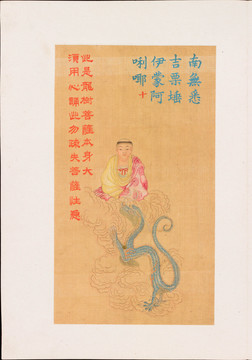 南無悉
吉栗埵
伊蒙阿
唎哪
十
此是龍樹菩薩本身大
須用心歸此勿疏失菩薩性急